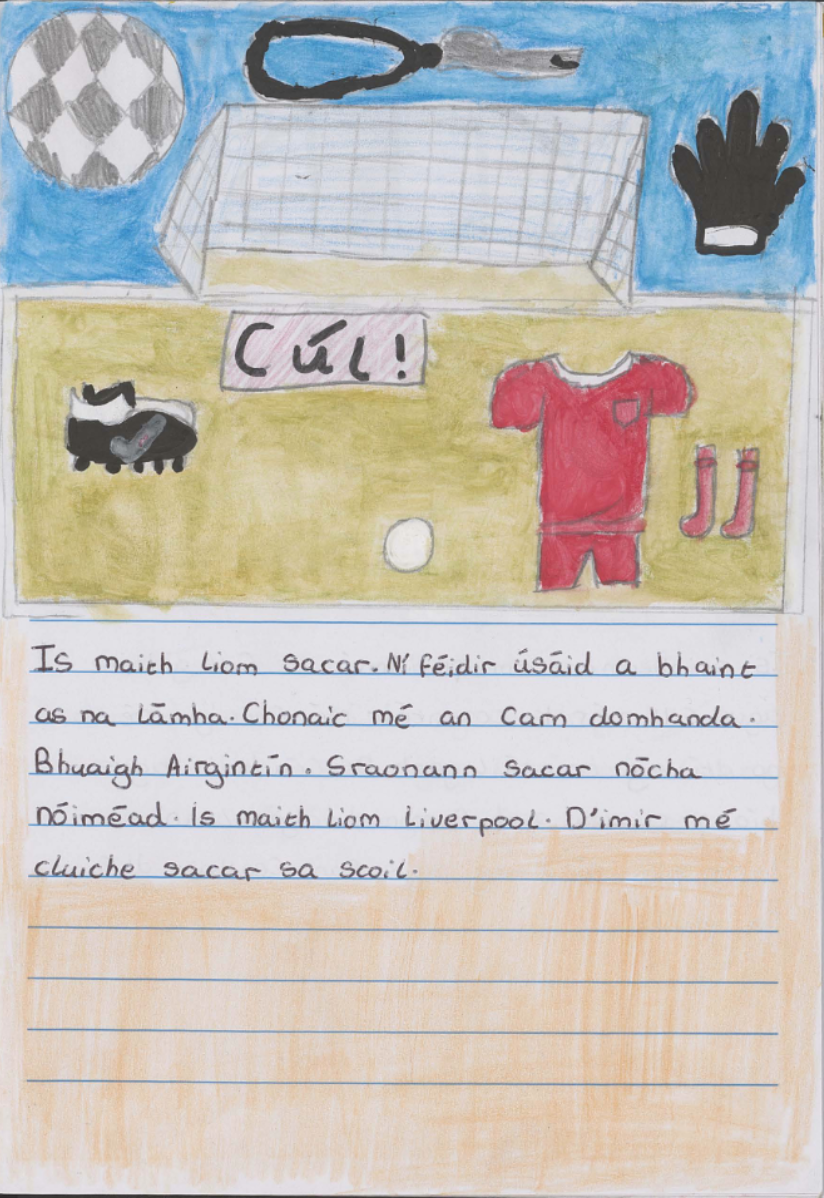 Cúl!
Is maith liom sacar. Ní féidir úsáid a bhaint
as na lámha. Chonaic mé an Carn domhanda.
Bhuaigh Airgintín. Sraonann sacar nócha
nóiméad. Is maith liom Liverpool. D'imir mé
cluiche sacar sa scoil.